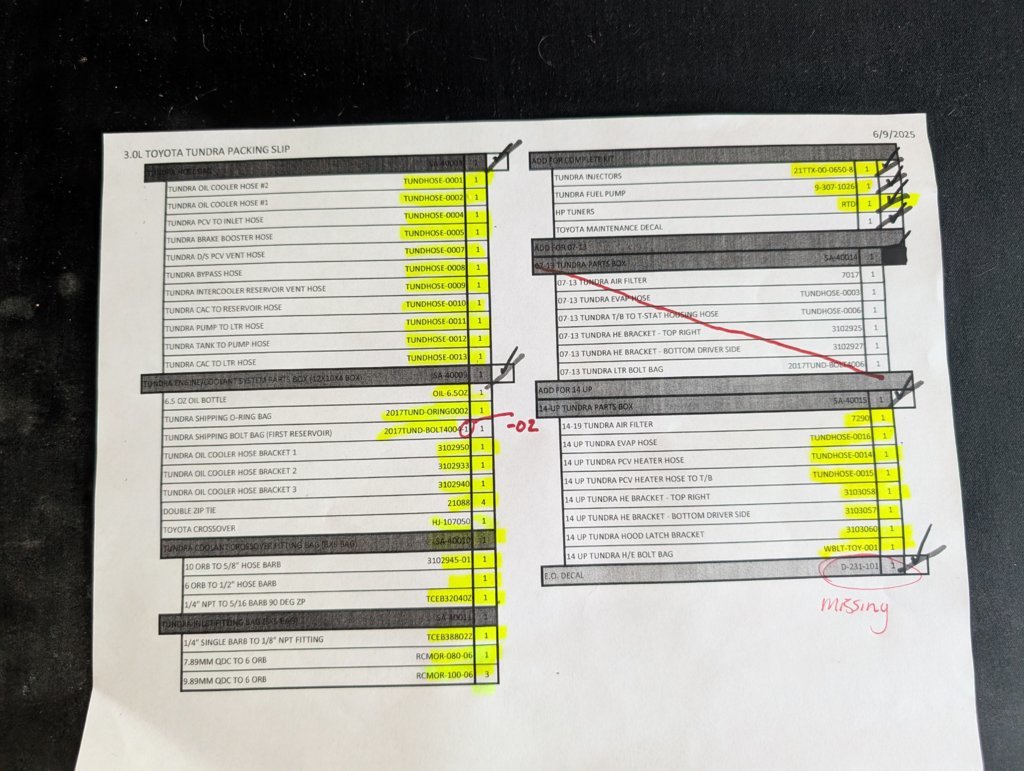 6/9/2025
3.0L TOYOTA TUNDRA PACKING SLIP
TUNDRA HOSE BAG SA-40003 1
TUNDRA OIL COOLER HOSE #2 TUNDHOSE-0001 1
TUNDRA OIL COOLER HOSE #1 TUNDHOSE-0002 1
TUNDRA PCV TO INLET HOSE TUNDHOSE-0004 1
TUNDRA BRAKE BOOSTER HOSE TUNDHOSE-0005 1
TUNDRA D/S PCV VENT HOSE TUNDHOSE-0007 1
TUNDRA BYPASS HOSE TUNDHOSE-0008 1
TUNDRA INTERCOOLER RESERVOIR VENT HOSE TUNDHOSE-0009 1
TUNDRA CAC TO RESERVOIR HOSE TUNDHOSE-0010 1
TUNDRA PUMP TO LTR HOSE TUNDHOSE-0011 1
TUNDRA TANK TO PUMP HOSE TUNDHOSE-0012 1
TUNDRA CAC TO LTR HOSE TUNDHOSE-0013 1
TUNDRA ENGINE/COOLANT SYSTEM PARTS BOX (12X10X4 BOX) SA-40009 1
6.5 OZ OIL BOTTLE OIL-6.5OZ 1
TUNDRA SHIPPING O-RING BAG 2017TUND-ORING0002 1
TUNDRA SHIPPING BOLT BAG (FIRST RESERVOIR) 2017TUND-BOLT4004-1 1 -02
TUNDRA OIL COOLER HOSE BRACKET 1 3102950 1
TUNDRA OIL COOLER HOSE BRACKET 2 3102933 1
TUNDRA OIL COOLER HOSE BRACKET 3 3102940 1
DOUBLE ZIP TIE 21088 4
TOYOTA CROSSOVER HJ-107050 1
TUNDRA COOLANT CROSSOVER FITTING BAG (8X8 BAG) SA-40010 1
10 ORB TO 5/8" HOSE BARB 3102945-01 1
6 ORB TO 1/2" HOSE BARB 1
1/4" NPT TO 5/16 BARB 90 DEG ZP TCEB32040Z 1
TUNDRA INLET FITTING BAG 1
1/4" SINGLE BARB TO 1/8" NPT FITTING TCEB38802Z 1
7.89MM QDC TO 6 ORB RCMOR-080-06 1
9.89MM QDC TO 6 ORB RCMOR-100-06 3
ADD FOR COMPLETE KIT
TUNDRA INJECTORS 21TTX-00-0650-8 1
TUNDRA FUEL PUMP 9-307-1026 1
HP TUNERS RTD 1
TOYOTA MAINTENANCE DECAL 1
ADD FOR 07-13
07-13 TUNDRA PARTS BOX SA-40014 1
07-13 TUNDRA AIR FILTER 7017 1
07-13 TUNDRA EVAP HOSE TUNDHOSE-0003 1
07-13 TUNDRA T/B TO T-STAT HOUSING HOSE TUNDHOSE-0006 1
07-13 TUNDRA HE BRACKET - TOP RIGHT 3102925 1
07-13 TUNDRA HE BRACKET - BOTTOM DRIVER SIDE 3102927 1
07-13 TUNDRA LTR BOLT BAG 2017TUND-BOLT4006 1
ADD FOR 14 UP
14-UP TUNDRA PARTS BOX SA-40015 1
14-19 TUNDRA AIR FILTER 7290 1
14 UP TUNDRA EVAP HOSE TUNDHOSE-0016 1
14 UP TUNDRA PCV HEATER HOSE TUNDHOSE-0014 1
14 UP TUNDRA PCV HEATER HOSE TO T/B TUNDHOSE-0015 1
14 UP TUNDRA HE BRACKET - TOP RIGHT 3103058 1
14 UP TUNDRA HE BRACKET - BOTTOM DRIVER SIDE 3103057 1
14 UP TUNDRA HOOD LATCH BRACKET 3103060 1
14 UP TUNDRA H/E BOLT BAG WBLT-TOY-001 1
E.O. DECAL D-231-101 1
Missing